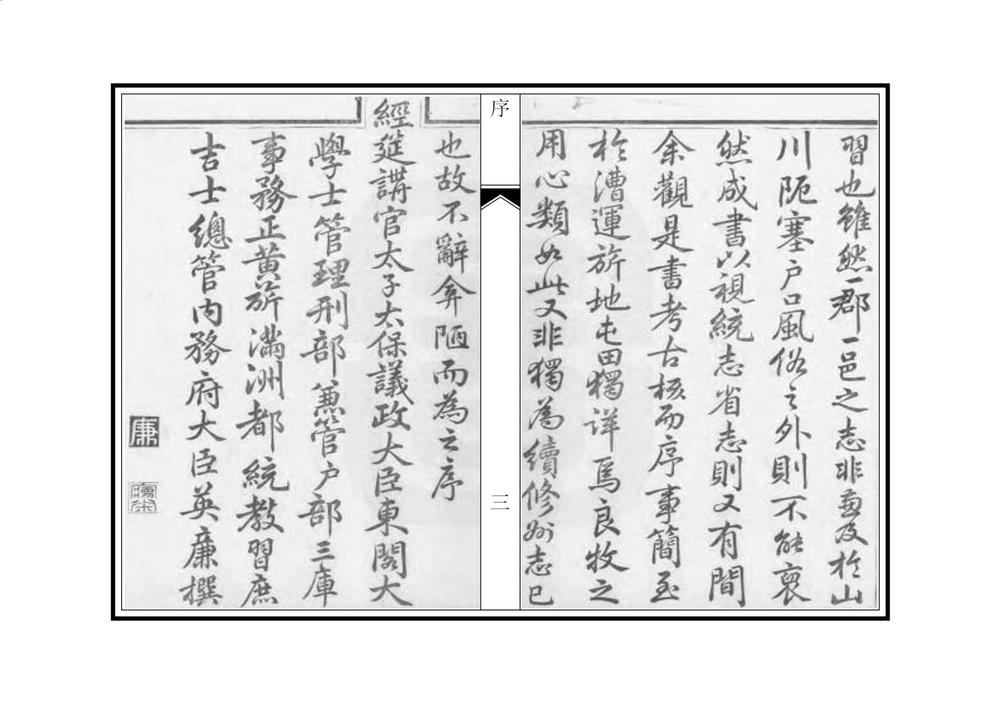 習也雖然一郡一邑之志非兼及於山
川阨塞戶口風俗之外則不能裒
然成書以視統志省志則又有間
余觀是書考古核而序事簡至
於漕運旂地屯田獨詳焉良牧之
用心類如此又非獨為續修州志已
序
三
也故不辭弇陋而為之序
經筵講官太子太保議政大臣東閣大
學士管理刑部兼管戶部三庫
事務正黃旂滿洲都統教習庶
吉士總管內務府大臣英廉撰
廉